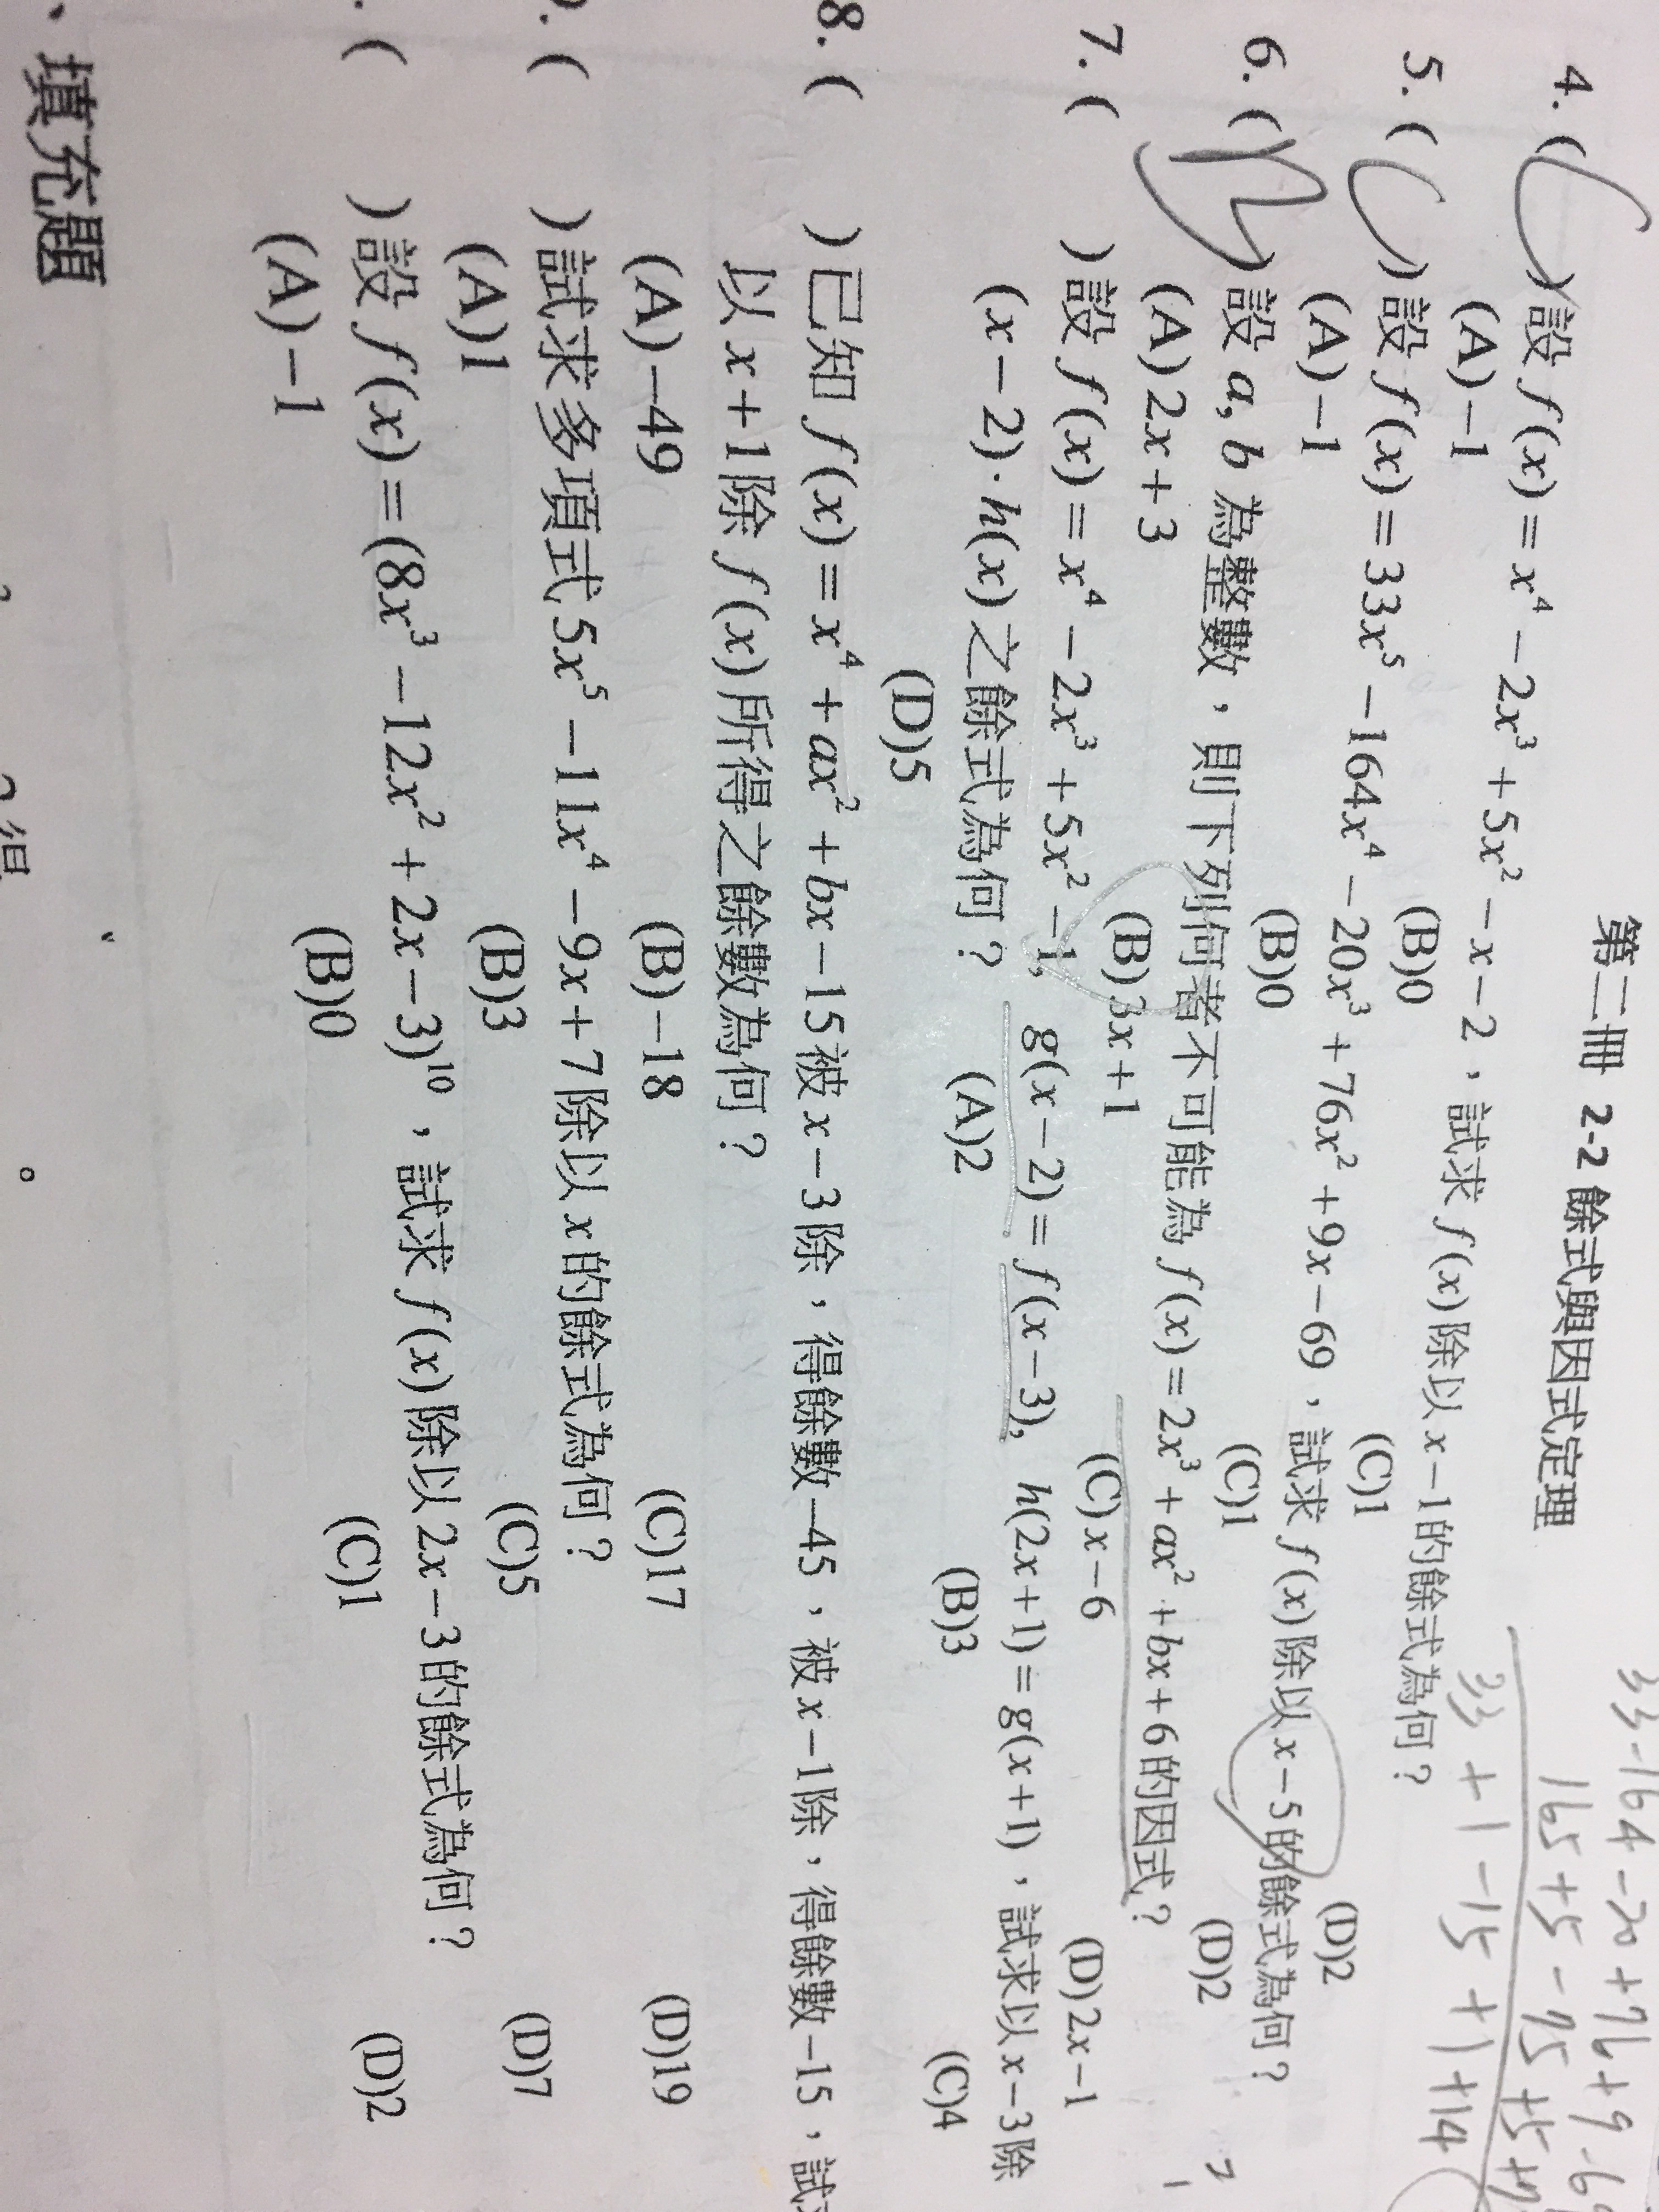 第二冊 2-2 餘式與因式定理
4. ( ) 設 f(x) = x⁴ − 2x³ + 5x² − x − 2，試求 f(x) 除以 x − 1 的餘式為何？
(A) −1 (B)0 (C)1 (D)2
5. ( ) 設 f(x) = 33x⁵ − 164x⁴ − 20x³ + 76x² + 9x − 69，試求 f(x) 除以 x − 5 的餘式為何？
(A) −1 (B)0 (C)1 (D)2
6. ( ) 設 a, b 為整數，則下列何者不可能為 f(x) = 2x³ + ax² + bx + 6 的因式？
(A) 2x + 3 (B) 3x + 1 (C) x − 6 (D) 2x − 1
7. ( ) 設 f(x) = x⁴ − 2x³ + 5x² − 1, g(x − 2) = f(x − 3), h(2x + 1) = g(x + 1)，試求以 x − 3 除
(x − 2)·h(x) 之餘式為何？ (A)2 (B)3 (C)4
(D)5
8. ( ) 已知 f(x) = x⁴ + ax² + bx − 15 被 x − 3 除，得餘數 −45，被 x − 1 除，得餘數 −15，試
以 x + 1 除 f(x) 所得之餘數為何？
(A) −49 (B) −18 (C)17 (D)19
. ( ) 試求多項式 5x⁵ − 11x⁴ − 9x + 7 除以 x 的餘式為何？
(A)1 (B)3 (C)5 (D)7
. ( ) 設 f(x) = (8x³ − 12x² + 2x − 3)¹⁰，試求 f(x) 除以 2x − 3 的餘式為何？
(A) −1 (B)0 (C)1 (D)2
、填充題
33 −164 −20 +76 +9 −6
165 +5 −75 +5 +7
33 +1 −15 +1 +14